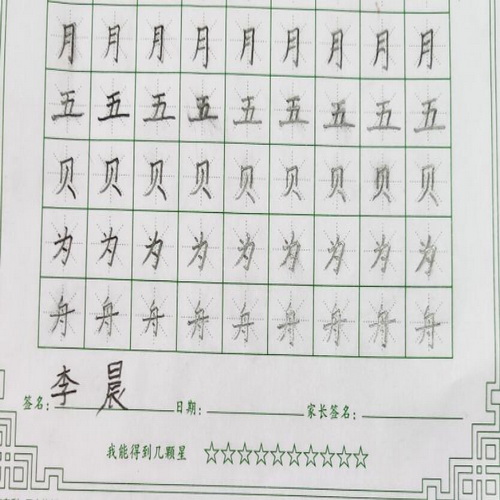 月月月月月月月月月
五五五五五五五五五
贝贝贝贝贝贝贝贝贝
为为为为为为为为为
舟舟舟舟舟舟舟舟舟
签名: 李晨 日期: 家长签名:
我能得到几颗星 ☆☆☆☆☆☆☆☆☆☆